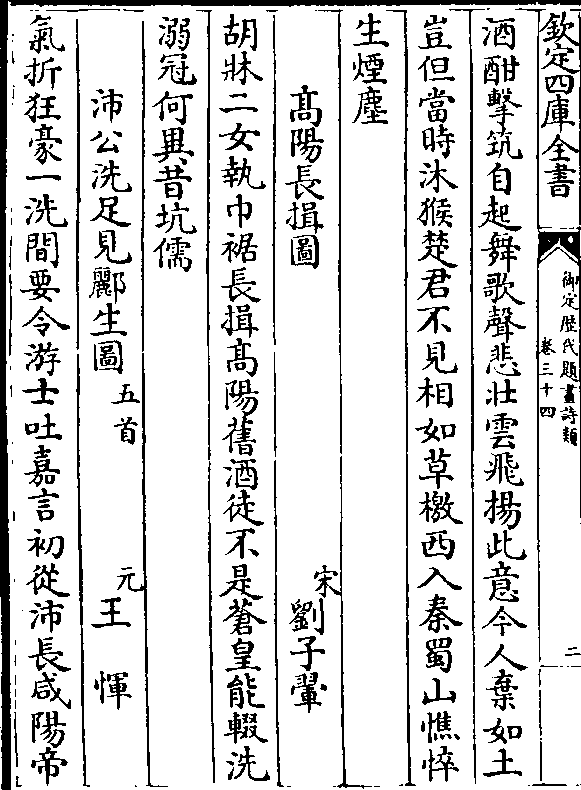 欽定四庫全書
御定歴代題畫詩類
卷三十四
二
酒酣擊筑自起舞歌聲悲壯雲飛揚此意今人棄如土
豈但當時沐猴楚君不見相如草檄西入秦蜀山憔悴
生煙塵
髙陽長揖圖
宋劉子翬
胡牀二女執巾裾長揖髙陽舊酒徒不是蒼皇能輟洗
溺冠何異昔坑儒
沛公洗足見酈生圖五首
元王惲
氣折狂豪一洗間要令游士吐嘉言初從沛長咸陽帝